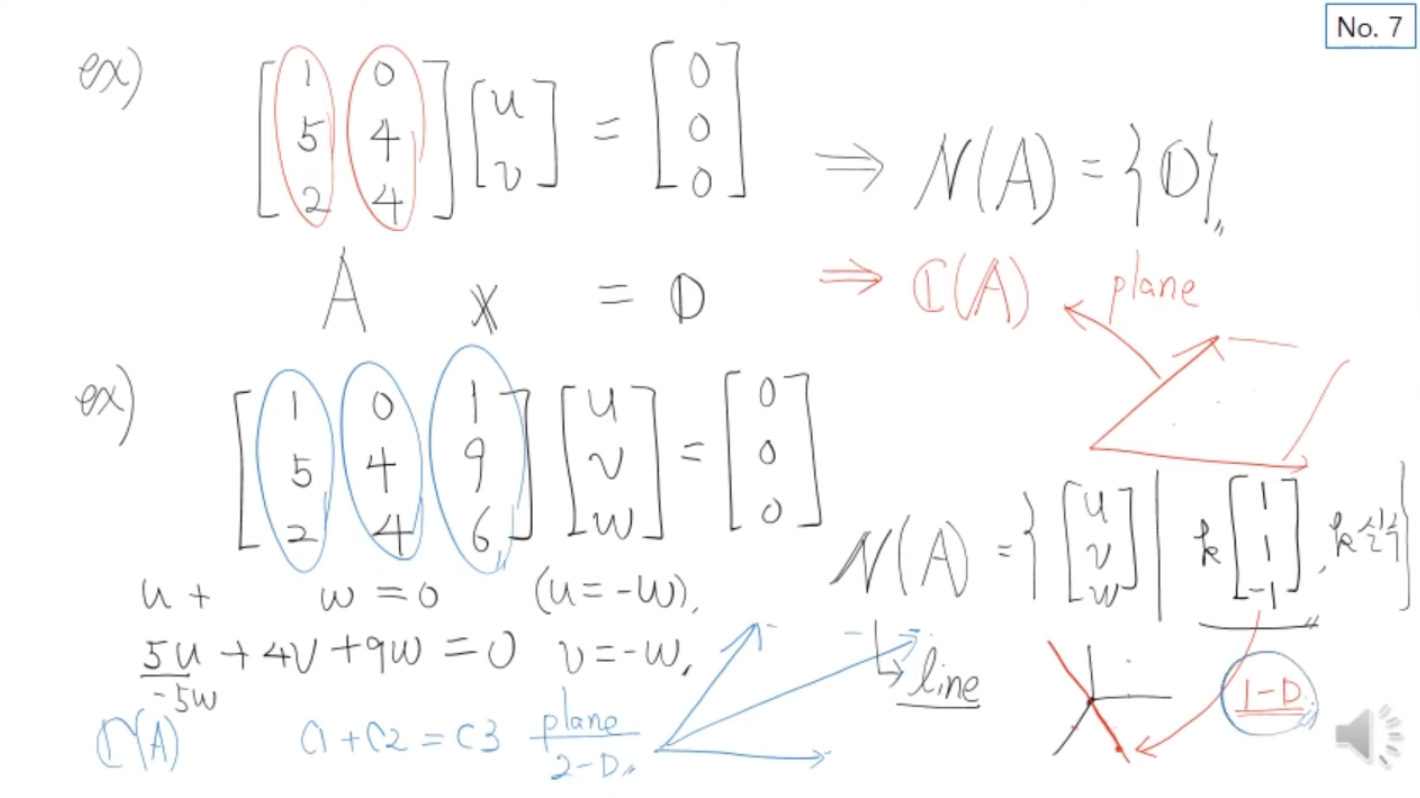 No. 7
ex) [1 0; 5 4; 2 4] [u; v] = [0; 0; 0] ⇒ N(A) = {0}
A x = 0 ⇒ C(A) plane
ex) [1 0 1; 5 4 9; 2 4 6] [u; v; w] = [0; 0; 0]
N(A) = { [u; v; w] | k [1; 1; -1], k 실수 }
u + w = 0 (u = -w),
5u + 4v + 9w = 0 v = -w,
-5w
line
1-D
C(A) c1 + c2 = c3 plane
2-D